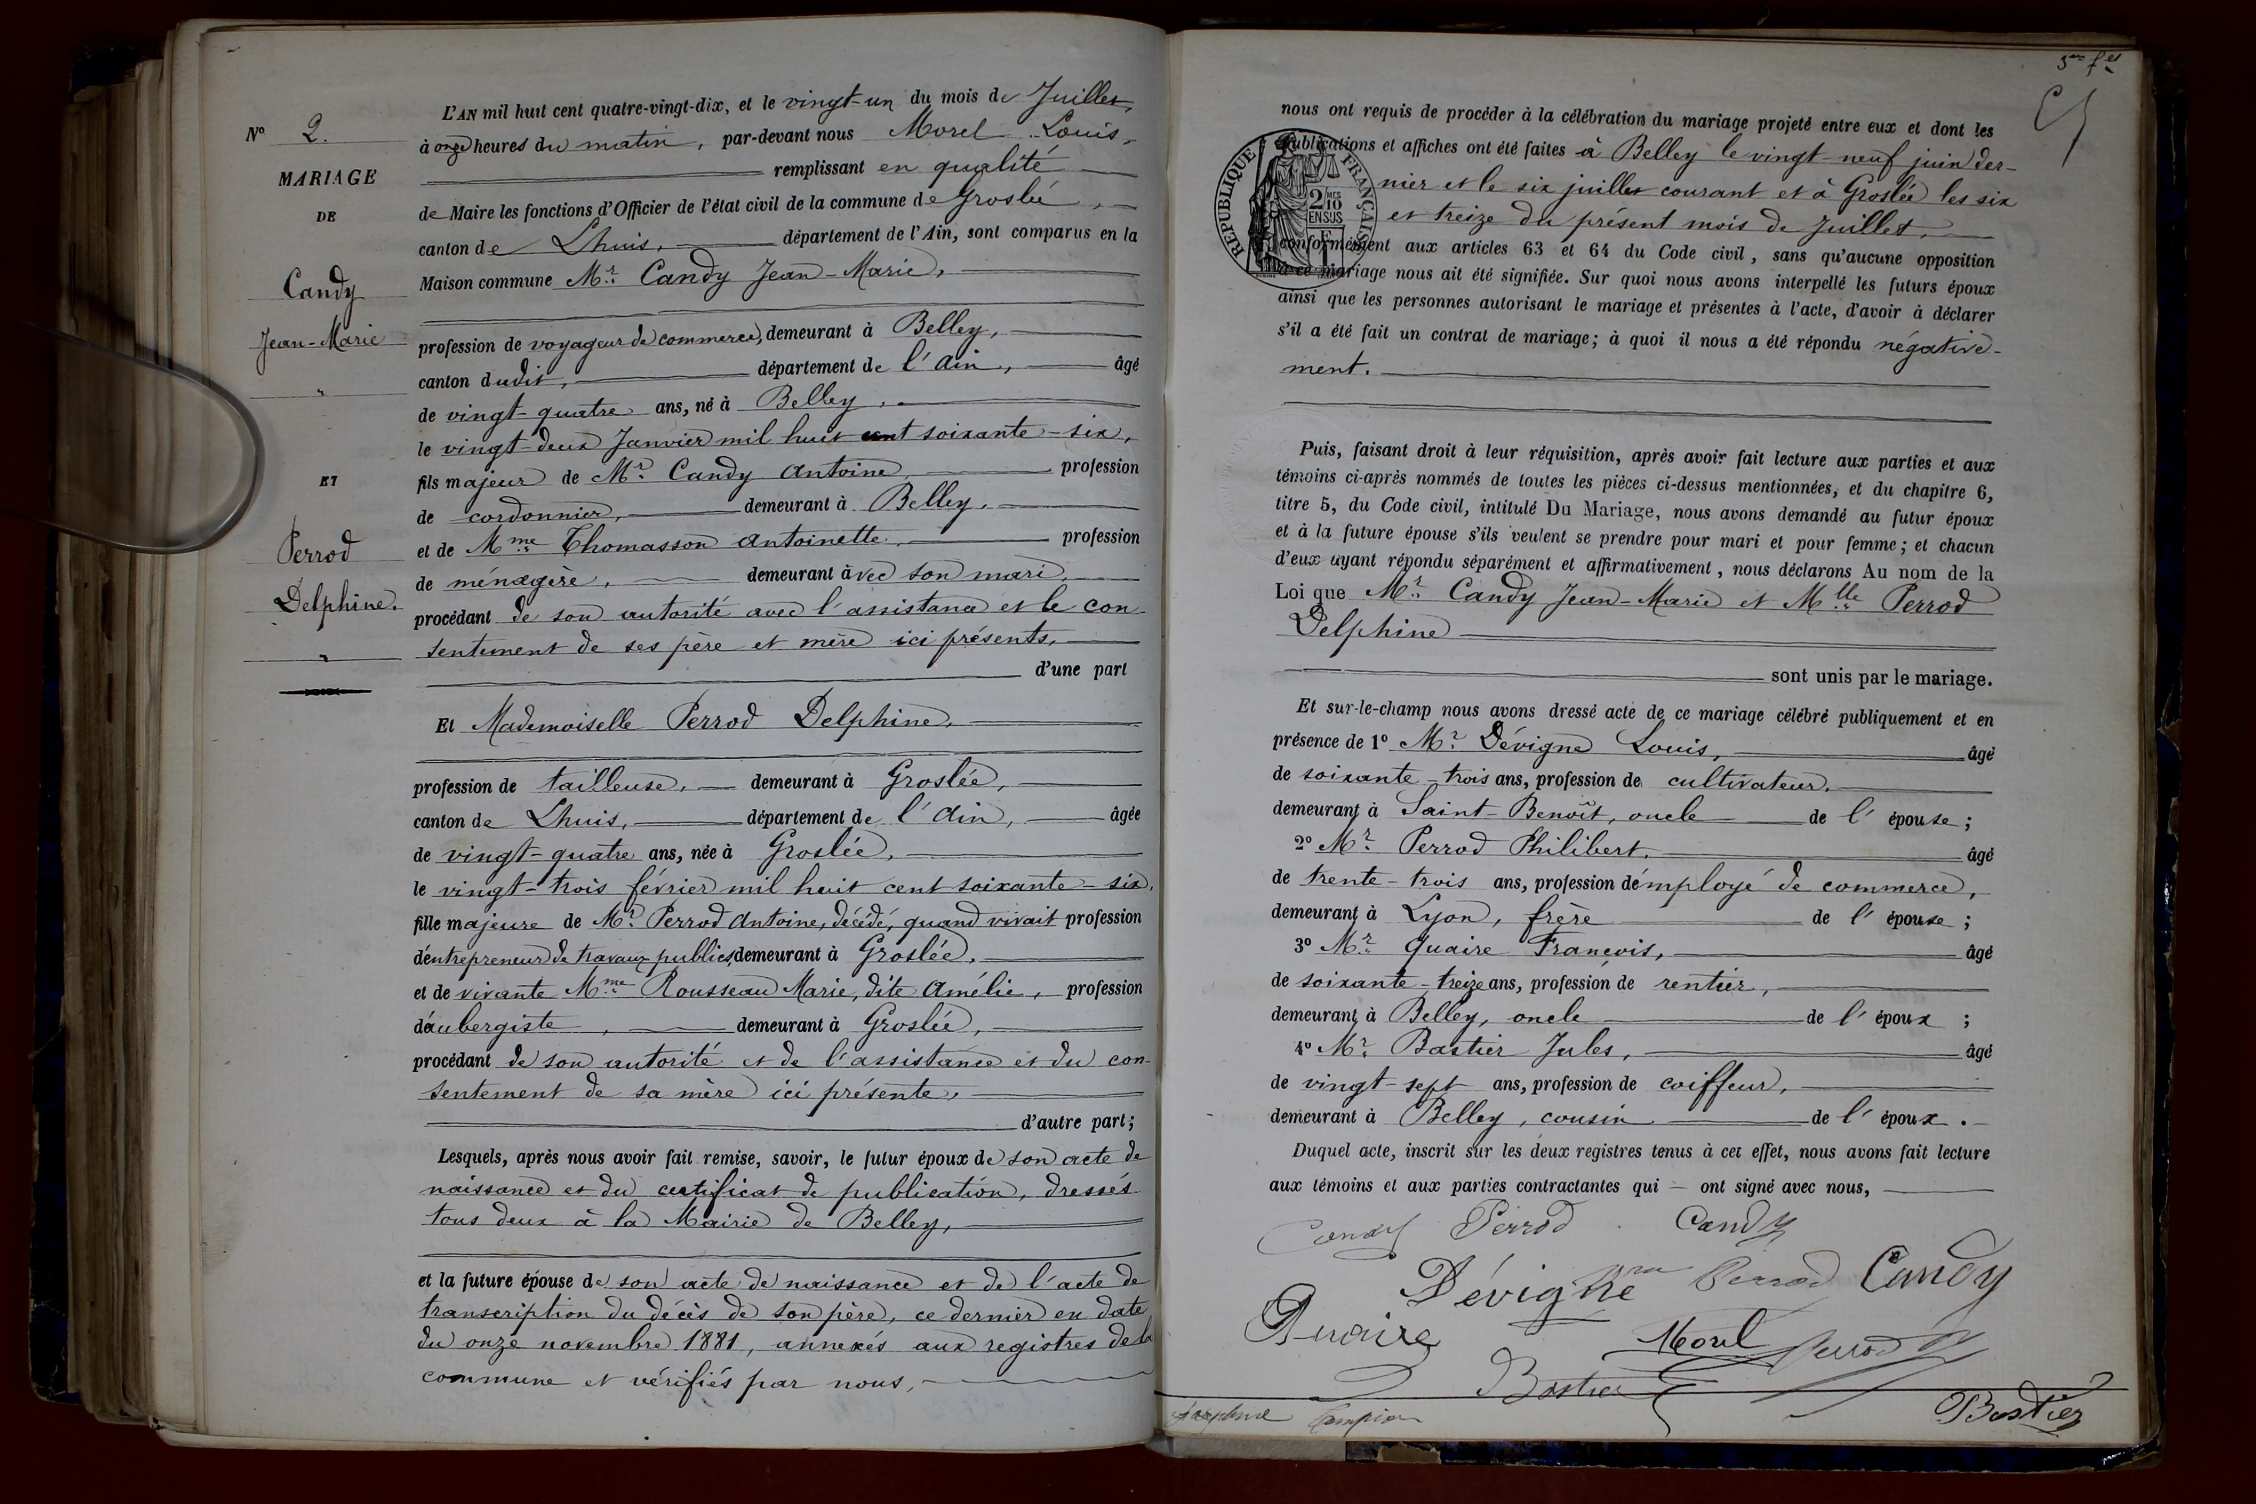 N° 2.
MARIAGE
DE
Candy
Jean-Marie
ET
Perrod
Delphine.
L'AN mil huit cent quatre-vingt-dix, et le vingt-un du mois de Juillet,
à onze heures du matin, par-devant nous Morel Louis,
remplissant en qualité
de Maire les fonctions d'Officier de l'état civil de la commune de Groslée,
canton de Lhuis, département de l'Ain, sont comparus en la
Maison commune Mr. Candy Jean-Marie,
profession de voyageur de commerce, demeurant à Belley,
canton dudit, département de l'Ain, âgé
de vingt-quatre ans, né à Belley,
le vingt-deux Janvier mil huit cent soixante-six,
fils majeur de Mr. Candy Antoine, profession
de cordonnier, demeurant à Belley,
et de Mme Thomasson Antoinette, profession
de ménagère, demeurant avec son mari,
procédant de son autorité avec l'assistance et le con-
sentement de ses père et mère ici présents,
d'une part
Et Mademoiselle Perrod Delphine,
profession de tailleuse, demeurant à Groslée,
canton de Lhuis, département de l'Ain, âgée
de vingt-quatre ans, née à Groslée,
le vingt-trois février mil huit cent soixante-six,
fille majeure de Mr. Perrod Antoine, décédé, quand vivait profession
d'entrepreneur de travaux publics, demeurant à Groslée,
et de vivante Mme Rousseau Marie, dite Amélie, profession
d'aubergiste, demeurant à Groslée,
procédant de son autorité et de l'assistance et du con-
sentement de sa mère ici présente,
d'autre part;
Lesquels, après nous avoir fait remise, savoir, le futur époux de son acte de
naissance et du certificat de publication, dressés
tous deux à la Mairie de Belley,
et la future épouse de son acte de naissance et de l'acte de
transcription du décès de son père, ce dernier en date
du onze novembre 1881, annexés aux registres de la
commune et vérifiés par nous,
nous ont requis de procéder à la célébration du mariage projeté entre eux et dont les
publications et affiches ont été faites à Belley le vingt-neuf juin der-
nier et le six juillet courant et à Groslée les six
et treize du présent mois de Juillet,
conformément aux articles 63 et 64 du Code civil, sans qu'aucune opposition
à ce mariage nous ait été signifiée. Sur quoi nous avons interpellé les futurs époux
ainsi que les personnes autorisant le mariage et présentes à l'acte, d'avoir à déclarer
s'il a été fait un contrat de mariage; à quoi il nous a été répondu négative-
ment.
RÉPUBLIQUE FRANÇAISE
2/10
EN SUS
Puis, faisant droit à leur réquisition, après avoir fait lecture aux parties et aux
témoins ci-après nommés de toutes les pièces ci-dessus mentionnées, et du chapitre 6,
titre 5, du Code civil, intitulé Du Mariage, nous avons demandé au futur époux
et à la future épouse s'ils veulent se prendre pour mari et pour femme; et chacun
d'eux ayant répondu séparément et affirmativement, nous déclarons Au nom de la
Loi que Mr. Candy Jean-Marie et Mlle Perrod
Delphine
sont unis par le mariage.
Et sur-le-champ nous avons dressé acte de ce mariage célébré publiquement et en
présence de 1° Mr. Dévigne Louis, âgé
de soixante-trois ans, profession de cultivateur,
demeurant à Saint-Benoît, oncle de l'épouse;
2° Mr. Perrod Philibert, âgé
de trente-trois ans, profession d'employé de commerce,
demeurant à Lyon, frère de l'épouse;
3° Mr. Quaire François, âgé
de soixante-treize ans, profession de rentier,
demeurant à Belley, oncle de l'époux;
4° Mr. Bastier Jules, âgé
de vingt-sept ans, profession de coiffeur,
demeurant à Belley, cousin de l'époux.
Duquel acte, inscrit sur les deux registres tenus à cet effet, nous avons fait lecture
aux témoins et aux parties contractantes qui – ont signé avec nous,
Candy Perrod Candy
Dévigne Perrod Candy
Quaire Morel Perrod
Bastier
Bastier